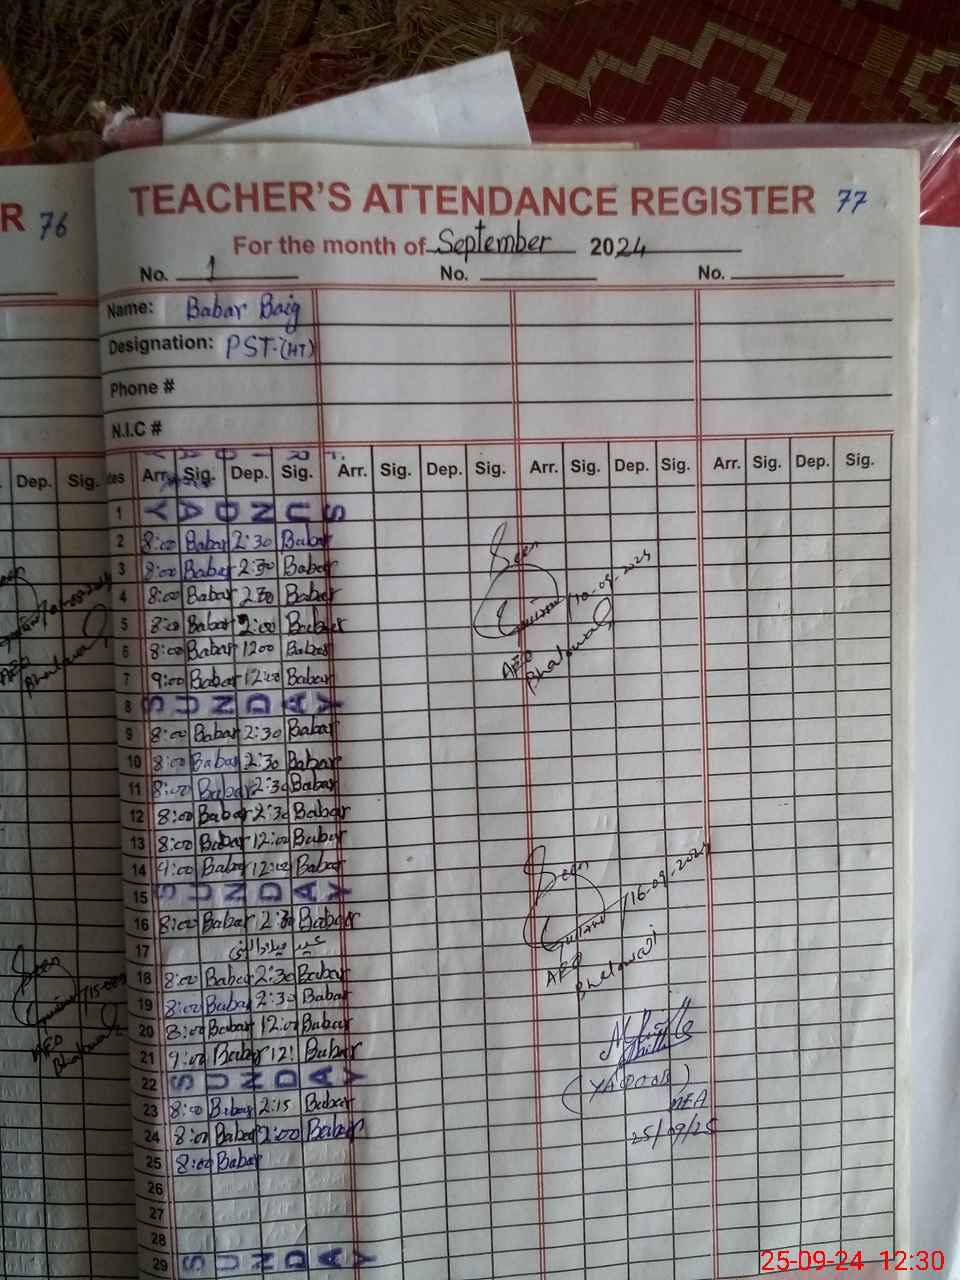 R 76
TEACHER'S ATTENDANCE REGISTER 77
For the month of September 2024
No. 1 No. No.
Name: Babar Baig
Designation: PST-(HT)
Phone #
N.I.C #
Dep. Sig. Arr. Sig. Dep. Sig. Arr. Sig. Dep. Sig. Arr. Sig. Dep. Sig. Arr. Sig. Dep. Sig.
1 SUNDAY
2 8:00 Babar 2:30 Babar
3 8:00 Babar 2:30 Babar
4 8:00 Babar 2:30 Babar
5 8:00 Babar 2:00 Babar
6 8:00 Babar 1200 Babar
7 9:00 Babar 12:00 Babar
8 SUNDAY
9 8:00 Babar 2:30 Babar
10 8:00 Babar 2:30 Babar
11 8:00 Babar 2:30 Babar
12 8:00 Babar 2:30 Babar
13 8:00 Babar 12:00 Babar
14 9:00 Babar 12:00 Babar
15 SUNDAY
16 8:00 Babar 2:30 Babar
17 عید میلادالنبی
18 8:00 Babar 2:30 Babar
19 8:00 Babar 2:30 Babar
20 8:00 Babar 12:00 Babar
21 9:00 Babar 12: Babar
22 SUNDAY
23 8:00 Babar 2:15 Babar
24 8:00 Babar 2:00 Babar
25 8:00 Babar
26
27
28
29 SUNDAY
Seen
10-09-2024
AEO
Bhalowal
Seen
16-09-2024
AEO
Bhalowal
MEA
25/09/25
Seen
AEO
Bhalowal
Seen
AEO
Bhalowal
25-09-24 12:30